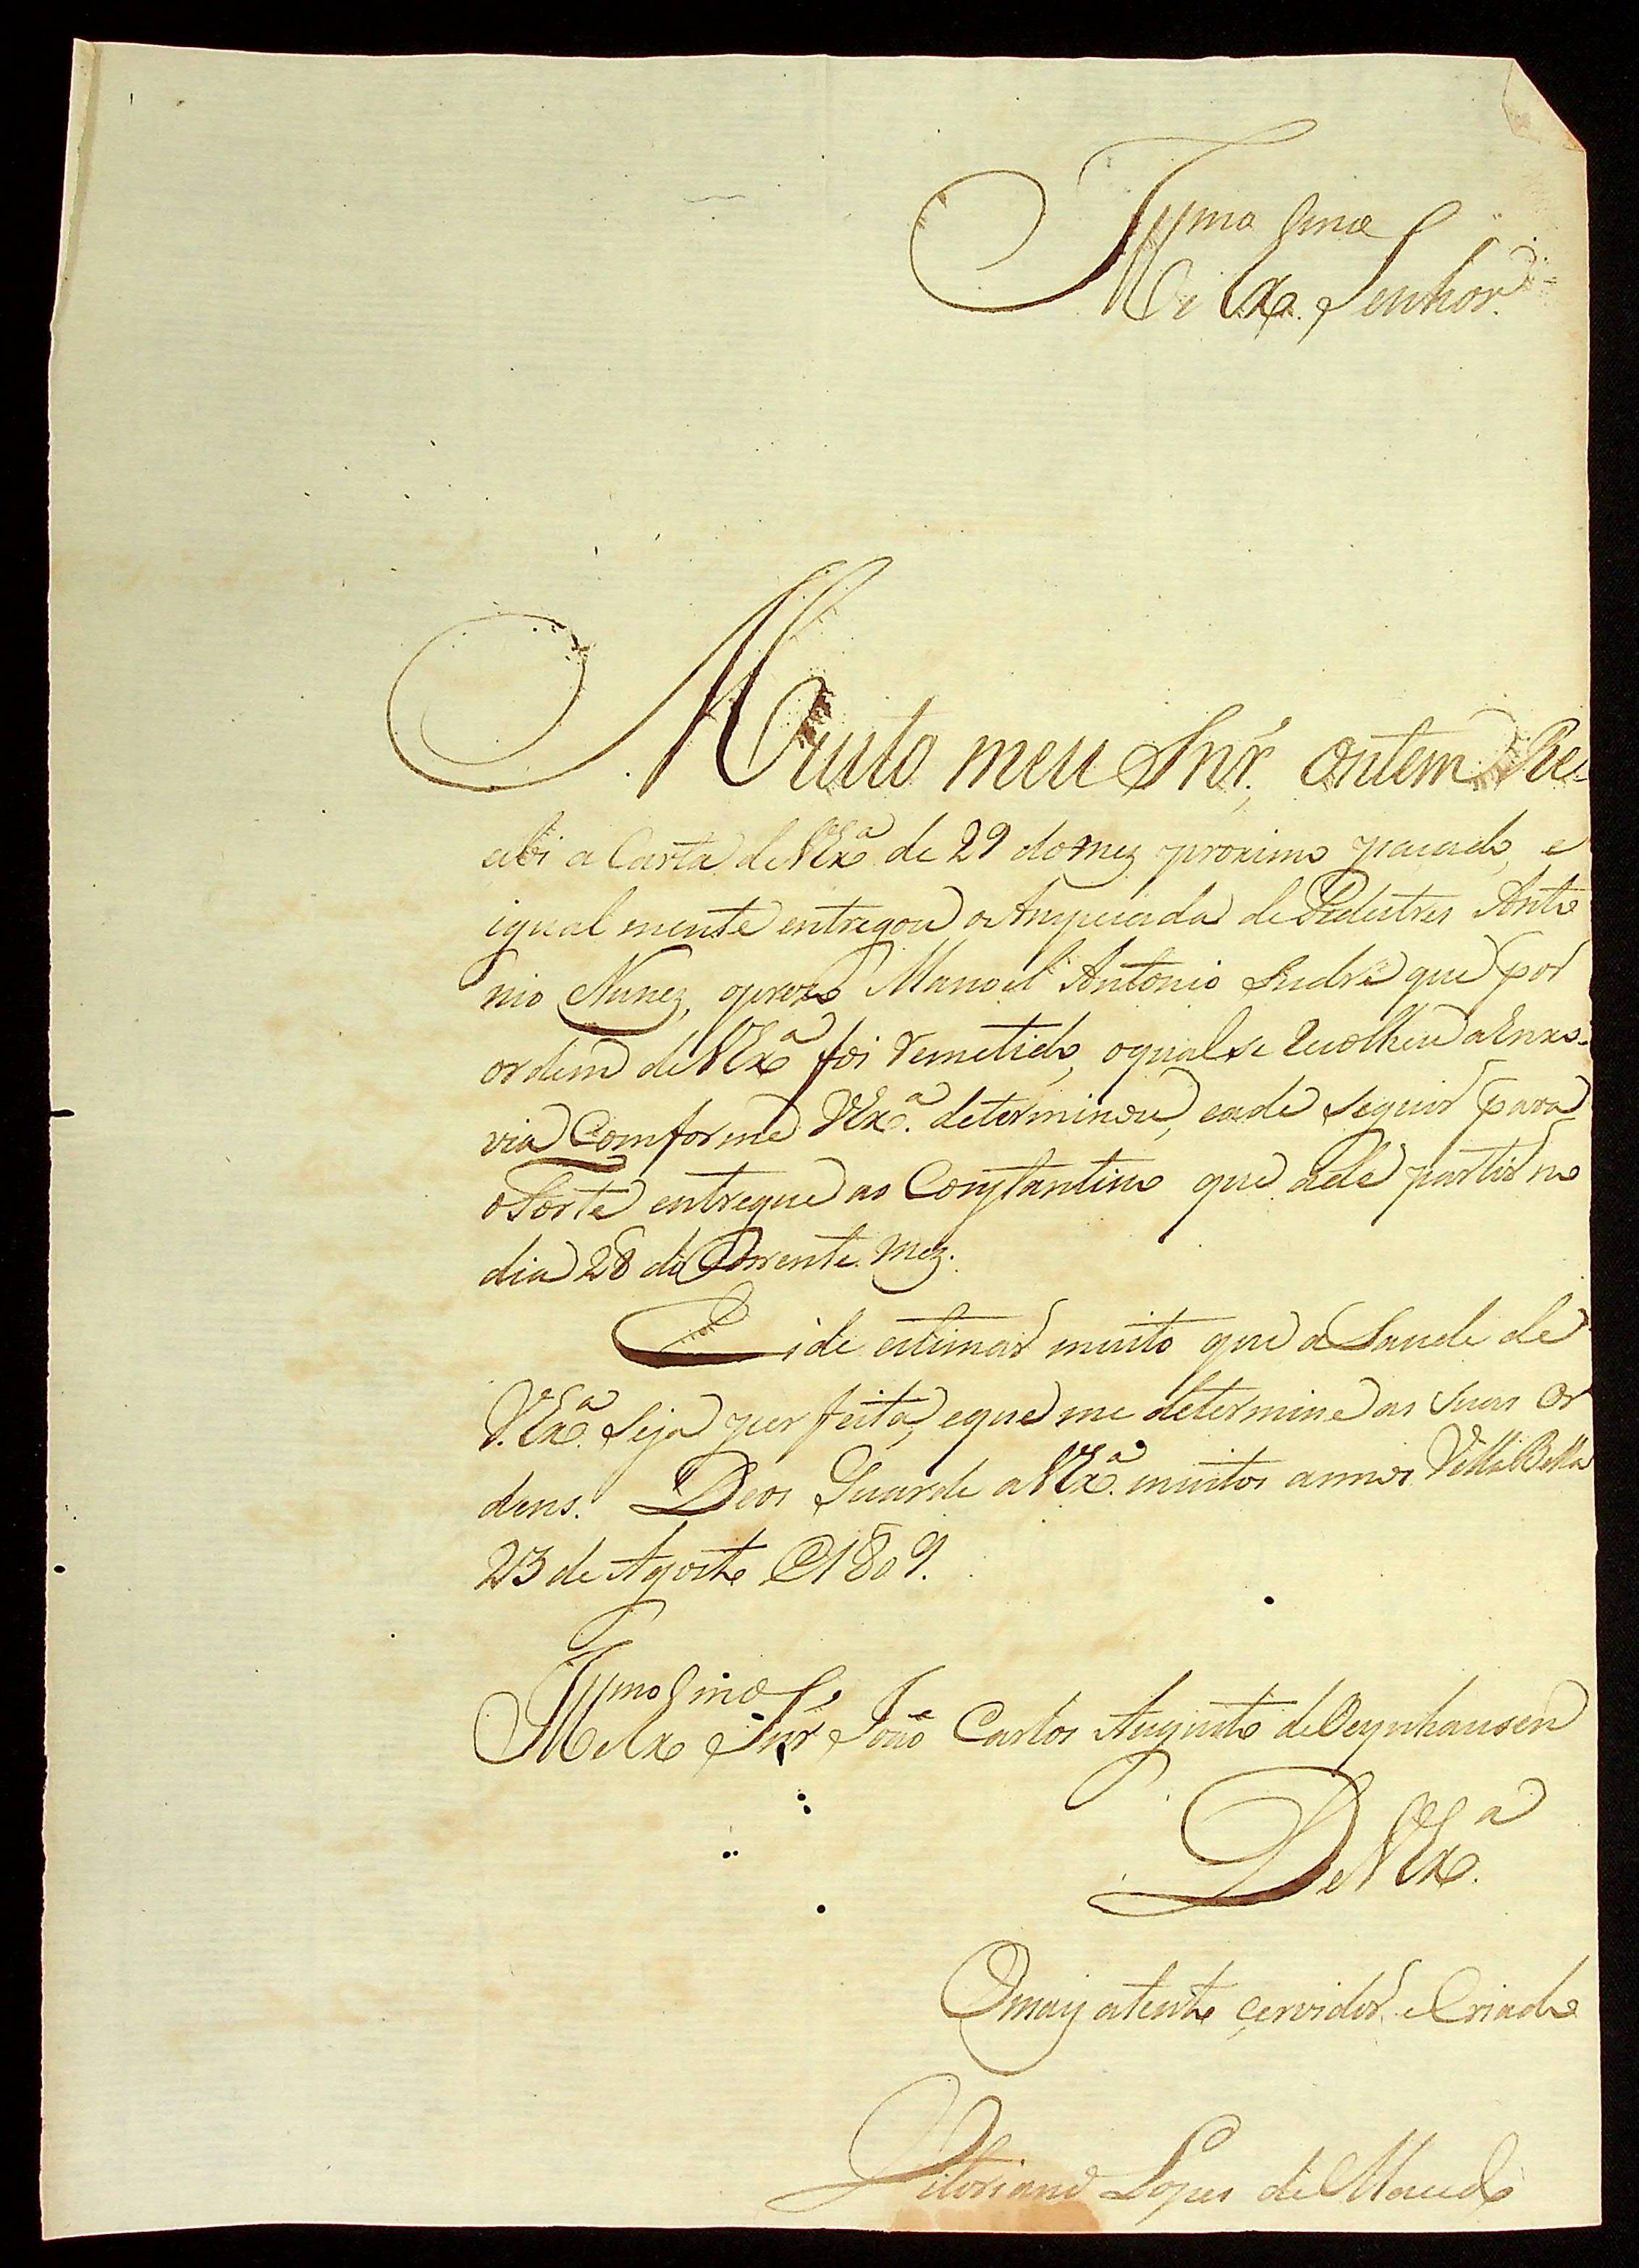 Illmo e Exmo Senhor
Muito meu Snr., ontem Re-
cibi a Carta de VExª de 29 do mez proximo paçado, e
igual mente entregou o Anspeçada de Pedestres Anto
nio Nunez, oprezo Manoel Antonio Sudré que por
ordem de VExª foi remetido, oqual se recolheu a Enxo-
via Comforme VExª. determinou, eade seguir para
o Forte entregue ao Constantino que dele partir no
dia 28 do Corrente mez.
ide estimar muito que a Saude de
V.Exª. seja perfeita, eque me determine as suas Or
dens. Deos Guarde a VExª. muitos annos Villa Bella
23 de Agosto @ 1809.
Illmo e Exmo Snr João Carlos Augusto de Oeynhausen
De VExª.
O mais atento çervidor e Criado
Vitoriano Lopes de Macedo